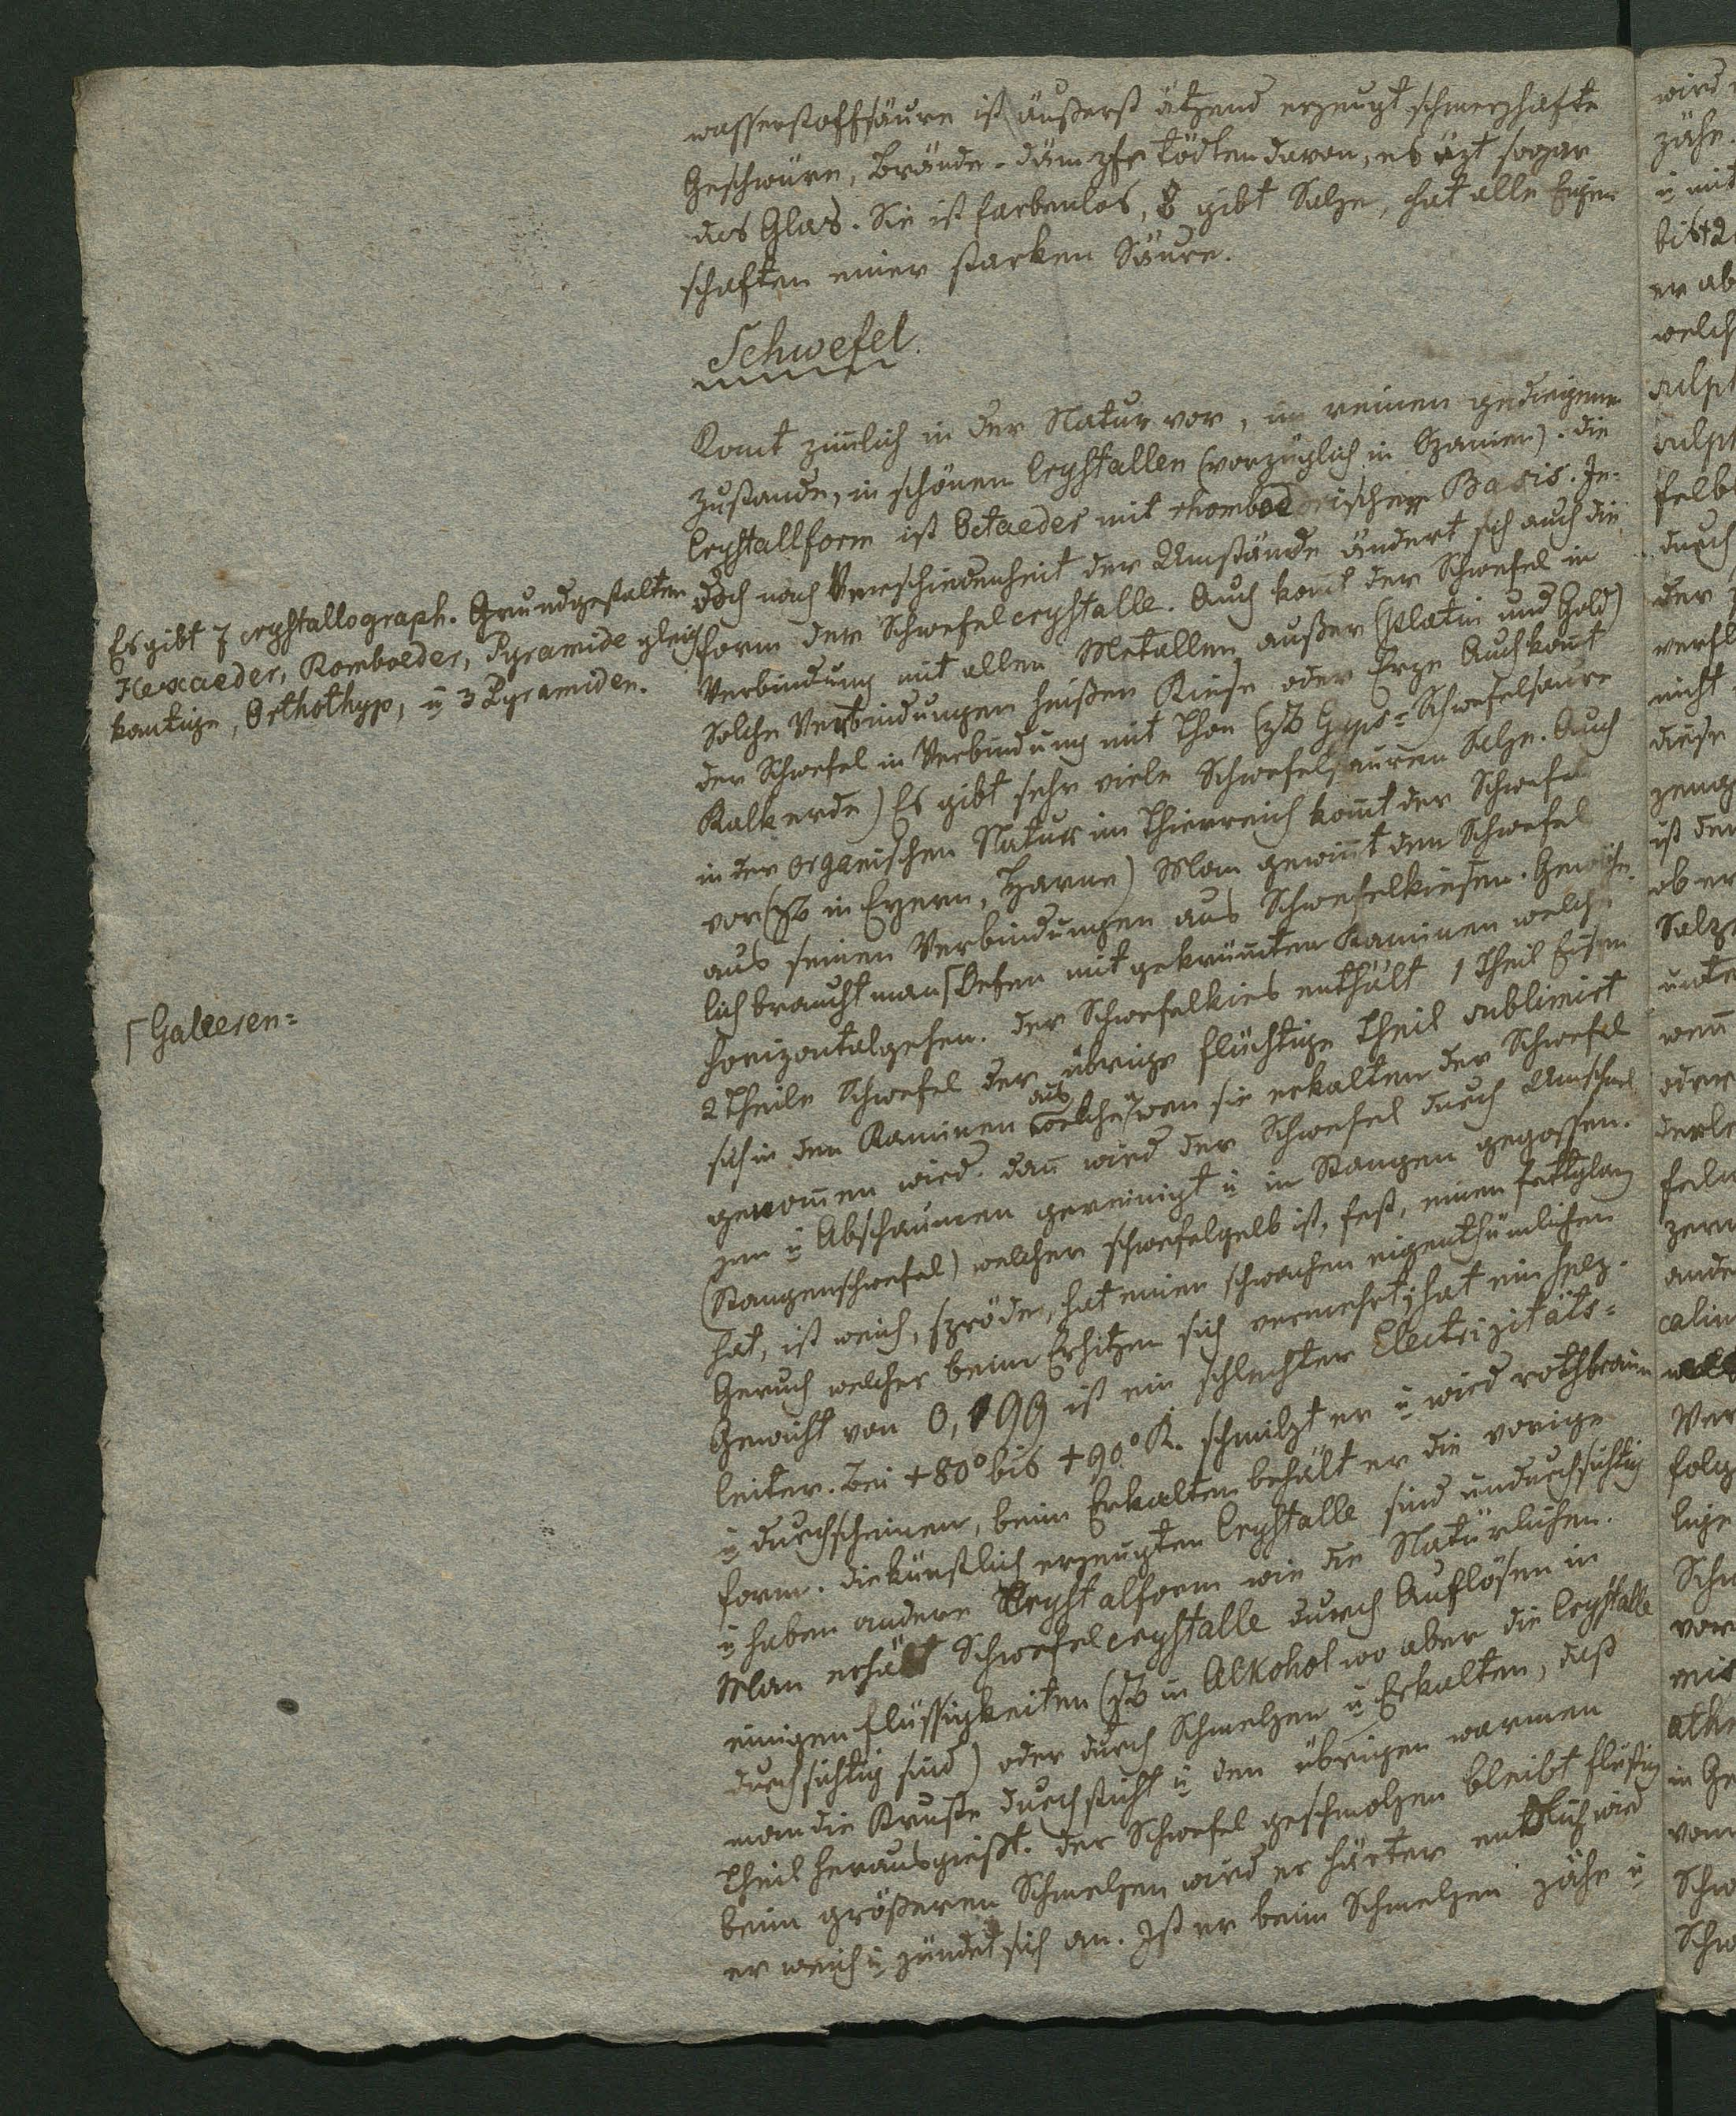 wasserstoffsäure ist äußerst ätzend erzeugt schmerzhafte
Geschwüre, Brände - dämpfe tödten davon, es äzt sogar
das Glas. Sie ist farbenlos, & gibt Salze, hat alle Eigen
schaften einer starken Säure.
Schwefel.
Komt zimlich in der Natur vor, im reinen gediegenen
Zustande, in schönen Crystallen (vorzüglich in Spanien). die
Crystallform ist Octaeder mit rhomboedrischer Basis. Je-
doch nach Verschiedenheit der Umstände ändert sich auch die
form der Schwefelcrystalle. Auch komt der Schwefel in
Verbindung mit allen Metallen, außer (Platin und Gold)
Solche Verbindungen heißen Kiese oder Erze Auch komt
der Schwefel in Verbindung mit Thon (zB Gyps = Schwefelsaure
Kalkerde) Es gibt sehr viele Schwefelsauren Salze. Auch
in der organischen Natur im Thierreich komt der Schwefel
vor (zB in Eyern, Harne) Man gewint den Schwefel
aus seinen Verbindungen aus Schwefelkiesen. Gewöhn
lich braucht man ⌈Oefen mit gekrümten Kaminen welche
horizontal gehen. der Schwefelkies enthält 1 Theil Eisen
2 Theile Schwefel der übrige flüchtige Theil sublimirt
sich in den Kaminen aus welchen wen sie erkalten der Schwefel
genomen wird. dan wird der Schwefel durch Umschmel
zen u Abschaumen gereinigt u in Stangen gegossen.
(Stangenschwefel) welcher schwefelgelb ist, fest, einen fettglanz
hat, ist weich, spröde, hat einen schwachen eigenthümlichen
Geruch welcher beim Erhitzen sich vermehrt; hat ein spez.
Gewicht von 0,199 ist ein schlechter Electrizitäts=
leiter. Bei +80° bis +90° R. schmilzt er u wird rothbraun
u durchscheinen, beim Erkalten behält er die vorige
form. die künstlich erzeugten Crystalle sind undurchsichtig
u haben andere Crystalform wie die Natürlichen.
Man erhält Schwefelcrystalle durch Auflösen in
einigen flüssigkeiten (zB in Alkohol wo aber die Crystalle
durchsichtig sind) oder durch Schmelzen u Erkalten, daß
man die Kruste durchsticht u den übrigen warmen
Theil herausgießt. der Schwefel geschmolzen bleibt flüßig
beim größeren Schmelzen wird er härter entlich wird
er weich u zündet sich an. Ist er beim Schmelzen zähe u
Es gibt 7 crystallograph. Grundgestalten
Hexaeder, Romboeder, Pyramide gleich
kantige, Orthothyp, u 3 Pyramiden.
⌈Galeeren=